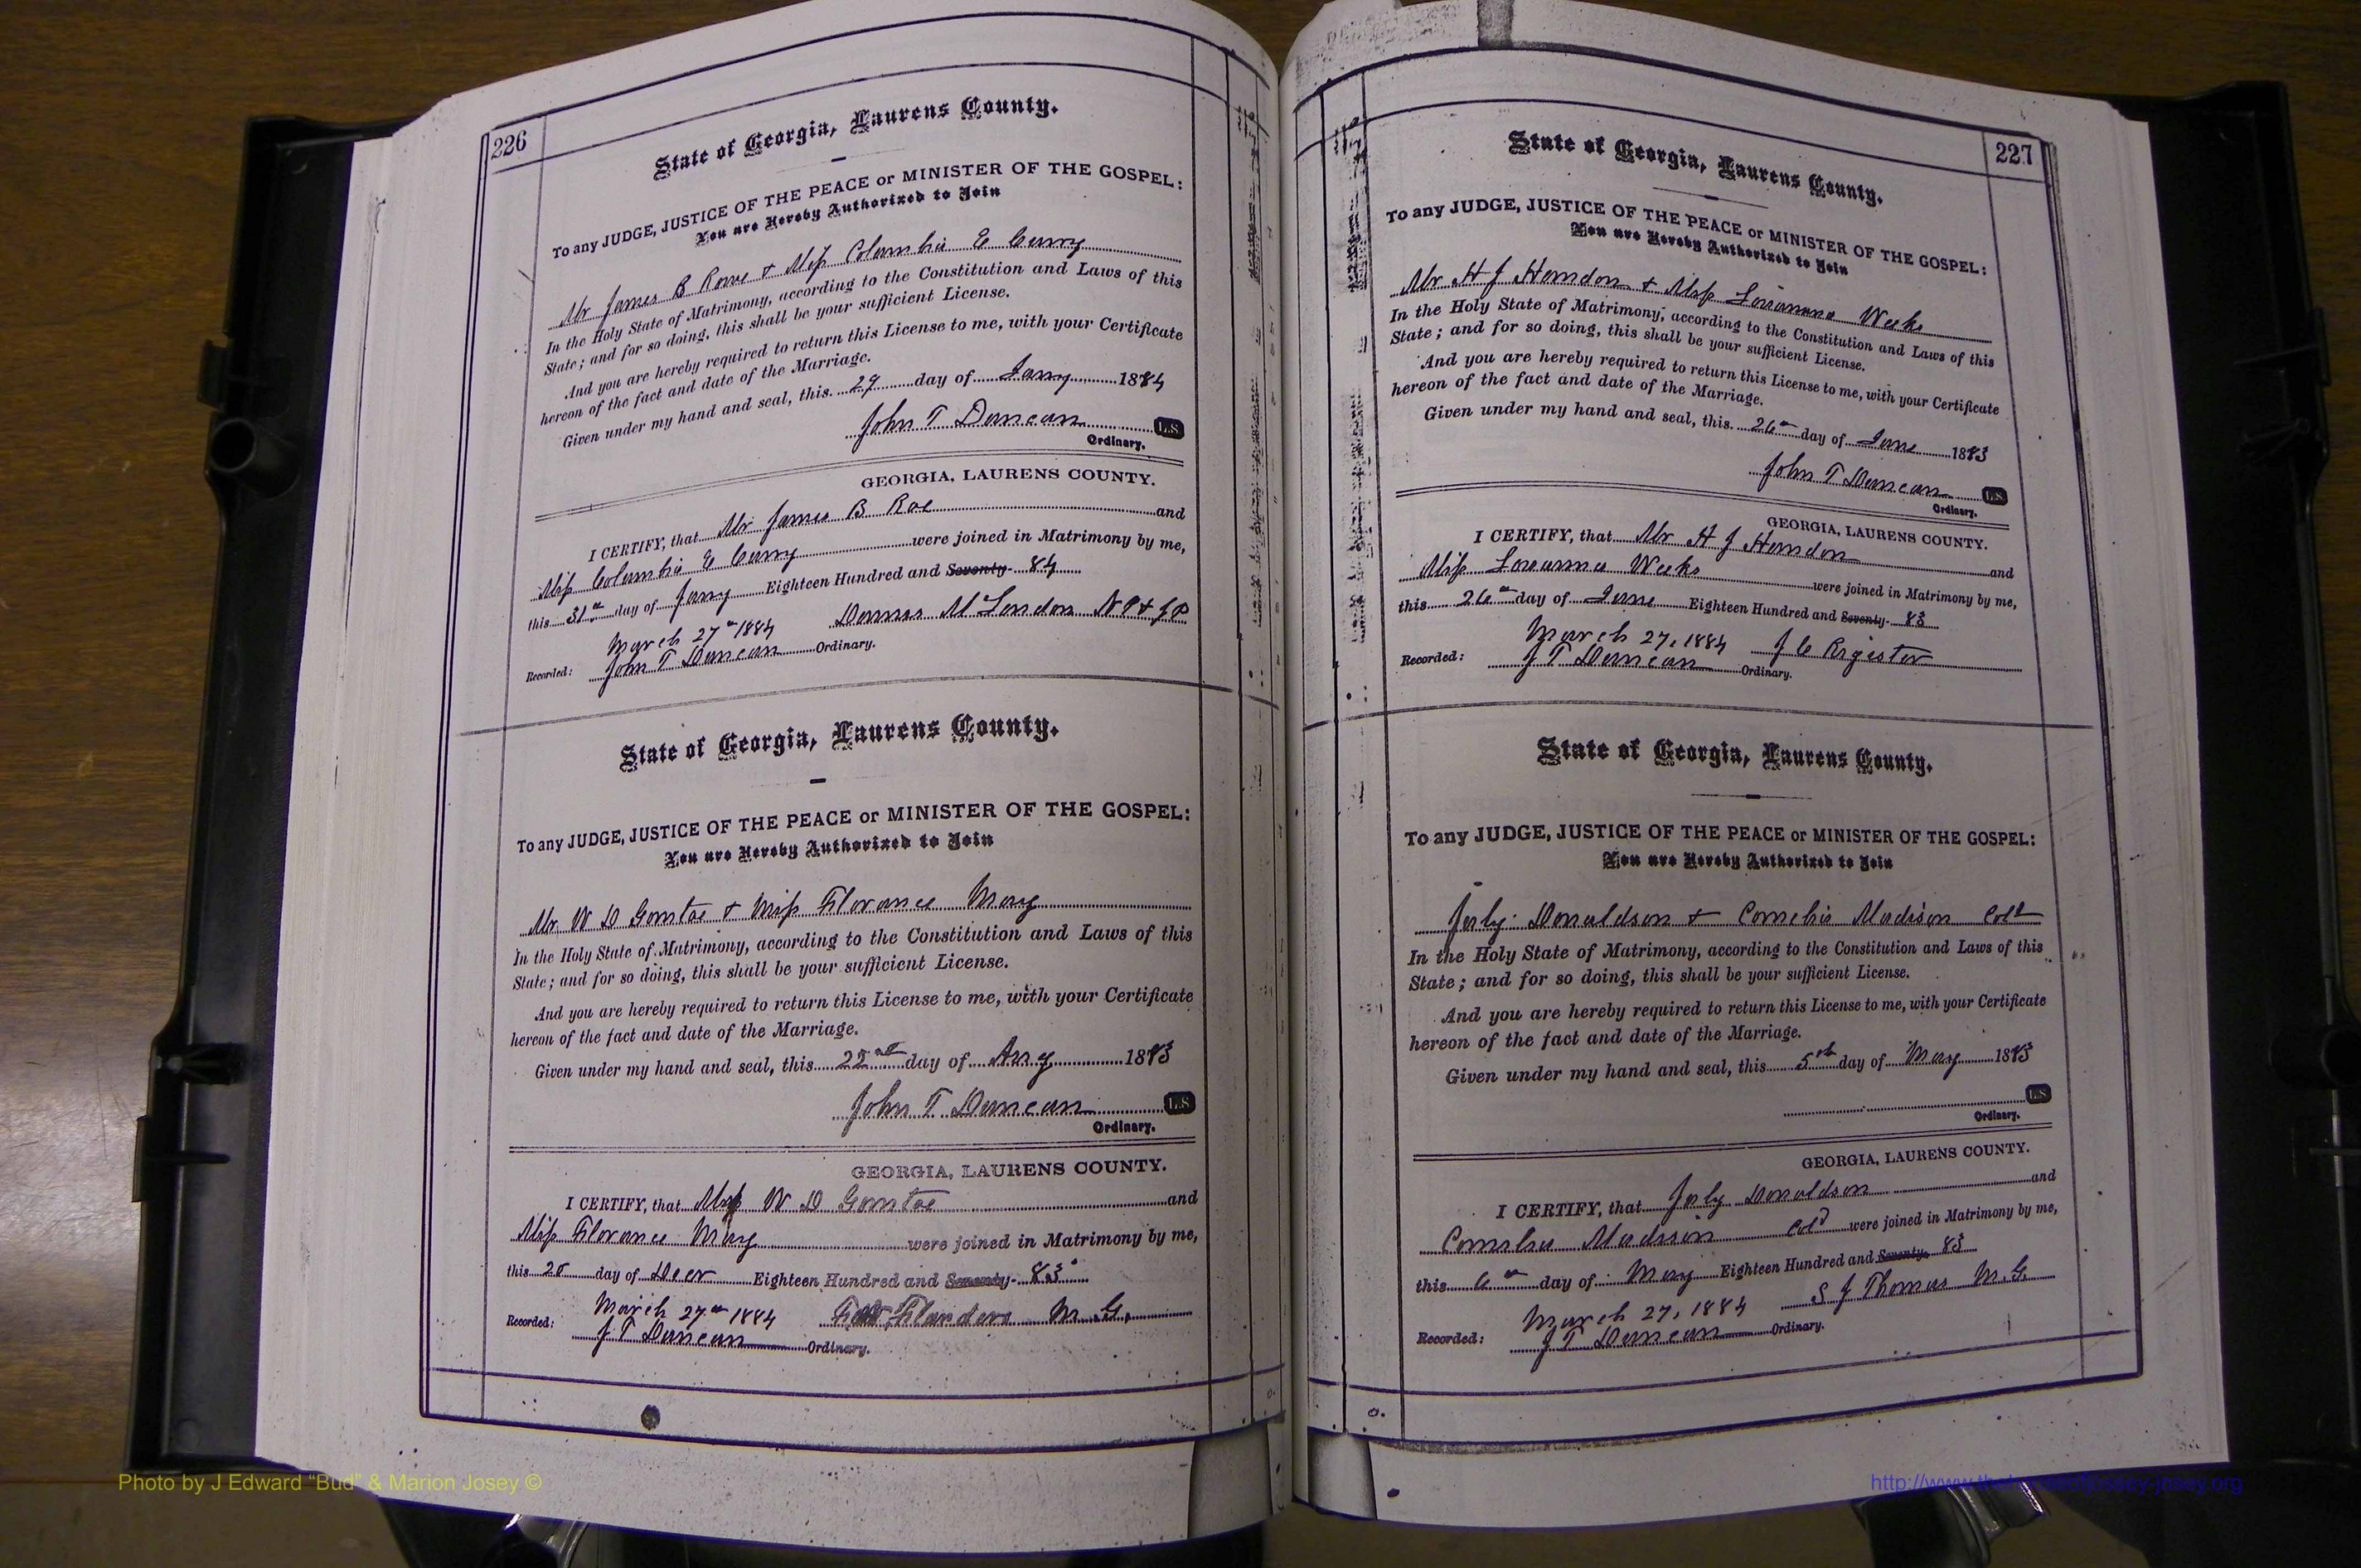 226
State of Georgia, Laurens County.
To any JUDGE, JUSTICE OF THE PEACE or MINISTER OF THE GOSPEL:
You are Hereby Authorized to Join
Mr James B Rowe & Miss Columbia E Curry
In the Holy State of Matrimony, according to the Constitution and Laws of this
State; and for so doing, this shall be your sufficient License.
And you are hereby required to return this License to me, with your Certificate
hereon of the fact and date of the Marriage.
Given under my hand and seal, this 29 day of Jany 1884
John T Duncan L.S.
Ordinary.
GEORGIA, LAURENS COUNTY.
I CERTIFY, that Mr James B Roe and
Miss Columbia E Curry were joined in Matrimony by me,
this 31st day of Jany Eighteen Hundred and Seventy- 84
March 27th 1884 M Londen N P & J P
Recorded: John T Duncan Ordinary.
State of Georgia, Laurens County.
To any JUDGE, JUSTICE OF THE PEACE or MINISTER OF THE GOSPEL:
You are Hereby Authorized to Join
Mr W D & Miss Florance May
In the Holy State of Matrimony, according to the Constitution and Laws of this
State; and for so doing, this shall be your sufficient License.
And you are hereby required to return this License to me, with your Certificate
hereon of the fact and date of the Marriage.
Given under my hand and seal, this 22nd day of 1883
John T Duncan L.S.
Ordinary.
GEORGIA, LAURENS COUNTY.
I CERTIFY, that W D and
Miss Florance May were joined in Matrimony by me,
this 20 day of Decr Eighteen Hundred and Seventy- 83
March 27th 1884 Flanders M.G.
Recorded: J T Duncan Ordinary.
227
State of Georgia, Laurens County.
To any JUDGE, JUSTICE OF THE PEACE or MINISTER OF THE GOSPEL:
You are Hereby Authorized to Join
Mr H J Herndon & Miss Weeks
In the Holy State of Matrimony, according to the Constitution and Laws of this
State; and for so doing, this shall be your sufficient License.
And you are hereby required to return this License to me, with your Certificate
hereon of the fact and date of the Marriage.
Given under my hand and seal, this 26th day of June 1883
John T Duncan L.S.
Ordinary.
GEORGIA, LAURENS COUNTY.
I CERTIFY, that Mr H J Herndon and
Miss Weeks were joined in Matrimony by me,
this 26th day of June Eighteen Hundred and Seventy- 83
March 27, 1884 J C Register
Recorded: J T Duncan Ordinary.
State of Georgia, Laurens County.
To any JUDGE, JUSTICE OF THE PEACE or MINISTER OF THE GOSPEL:
You are Hereby Authorized to Join
Donaldson & Cornelia Madison Cold
In the Holy State of Matrimony, according to the Constitution and Laws of this
State; and for so doing, this shall be your sufficient License.
And you are hereby required to return this License to me, with your Certificate
hereon of the fact and date of the Marriage.
Given under my hand and seal, this 5th day of May 1883
L.S.
Ordinary.
GEORGIA, LAURENS COUNTY.
I CERTIFY, that Donaldson and
Cornelia Madison Cold were joined in Matrimony by me,
this 6th day of May Eighteen Hundred and Seventy- 83
March 27, 1884 S J Thomas M.G.
Recorded: J T Duncan Ordinary.
Photo by J Edward "Bud" & Marion Josey ©